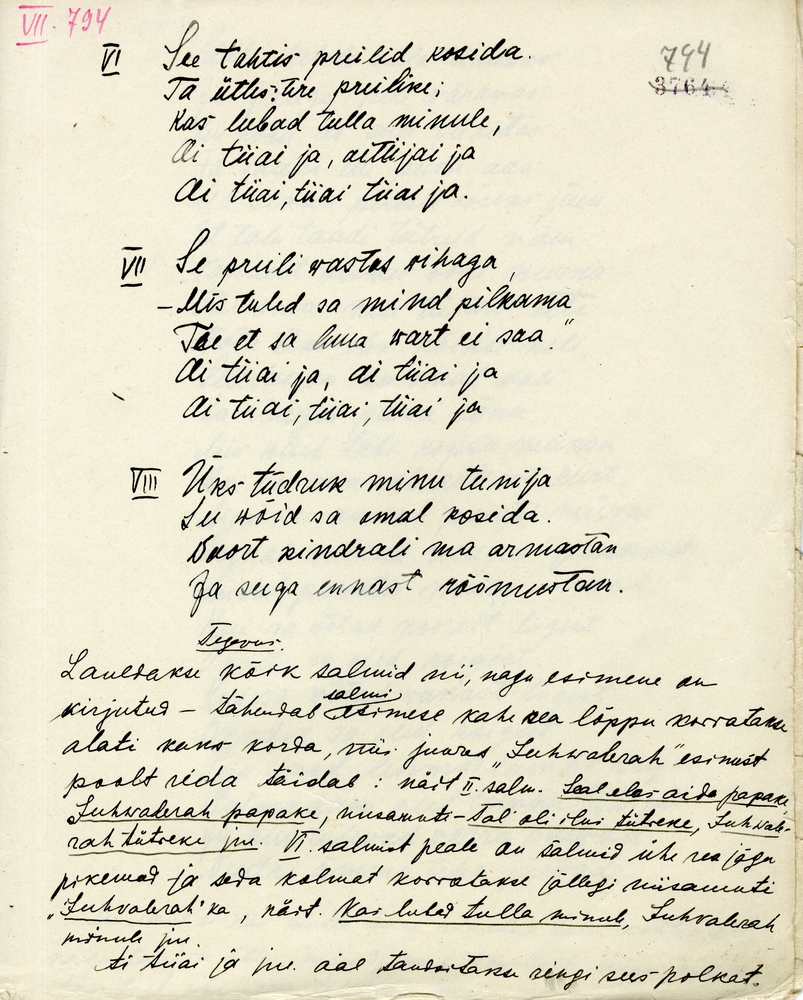 VII. 794
794
3764
VI See tahtis preilid kosida.
Ta ütles: tere preilike;
Kas lubad tulla minule,
Ai tiiai ja, aitiijai ja
Ai tiiai, tiiai tiiai ja.
VII Se preili wastas vihaga,
– Mis tuled sa mind pilkama
Tee et sa luua wart ei saa."
Ai tiiai ja, ai tiiai ja
Ai tiiai, tiiai, tiiai ja
VIII Üks tüdruk minu tenija
See wõid sa omal kosida.
Noort kindrali ma armastan
Ja seega ennast rõõmustan.
Tegevus.
Lauldakse kõik salmid nii, nagu esimene on
kirjutud – tähendab salmi esimese kahe rea lõppu korratakse
alati kaks korda, nii juures "Juhwalerah" esimest
poolt rida täidab: näit II. salm. Seal elas aida papake,
Juhwalerah papake, niisamuti – Tal oli ilus tütreke, Juhwale-
rah tütreke jne. VI. salmist peale on salmid ühe rea jägu
pikemad ja seda kolmat korratakse jällegi niisamuti
"Juhvalerah" ka, näit. Kas lubad tulla minule, Juhvalerah
minule jne.
Ai tiiai ja jne. aal tantsitakse ringi sees polkat.